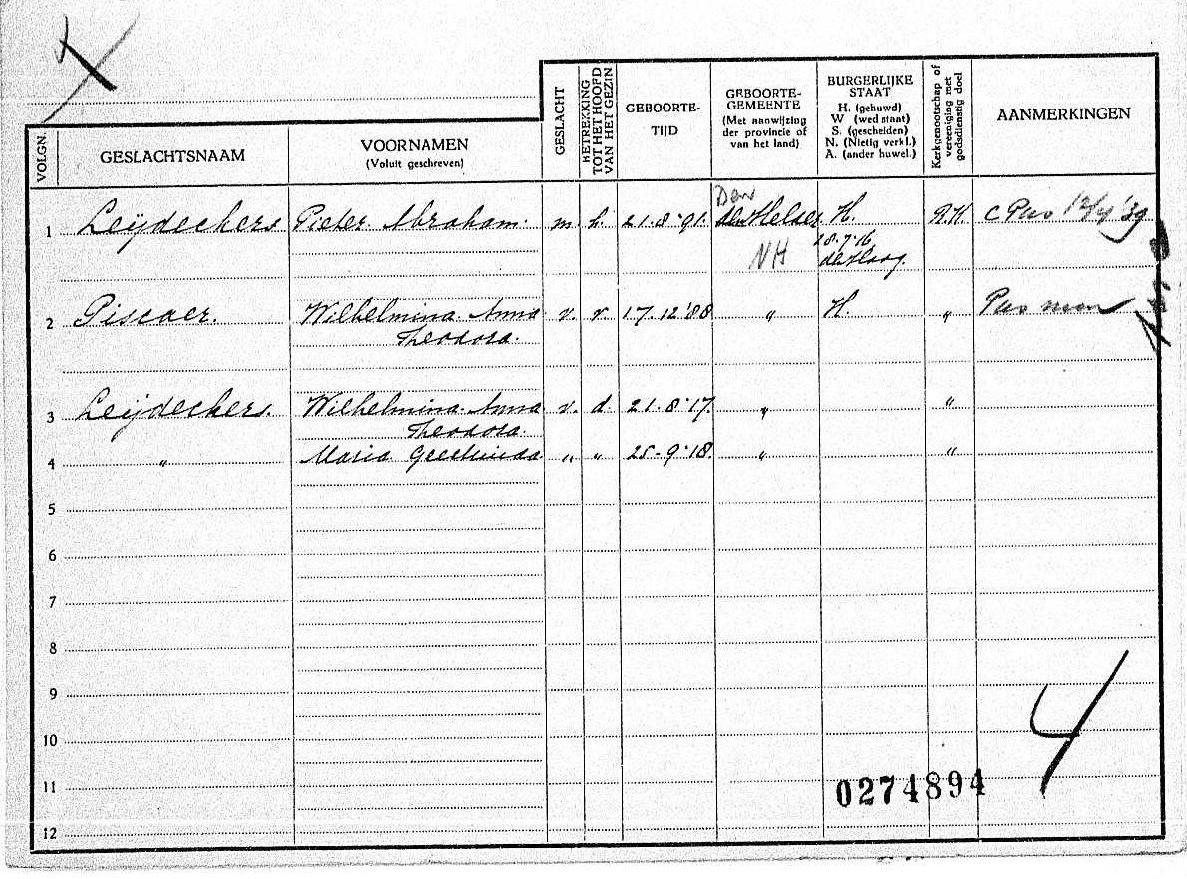 VOLGN.
GESLACHTSNAAM
VOORNAMEN
(Voluit geschreven)
GESLACHT
BETREKKING
TOT HET HOOFD
VAN HET GEZIN
GEBOORTE-
TIJD
GEBOORTE-
GEMEENTE
(Met aanwijzing
der provincie of
van het land)
BURGERLIJKE
STAAT
H. (gehuwd)
W (wedstaat)
S. (gescheiden)
N. (Nietig verkl.)
A. (ander huwel.)
Kerkgenootschap of
vereeniging met
godsdienstig doel
AANMERKINGEN
Den
1 Leijdeckers Pieter Abraham. m. h. 21-8-'91. den Helder H. R.K. c Pas 12/4 '39
NH 28-7-'16
den Haag.
2 Piscaer. Wilhelmina Anna v. v. 17-12-'88 " H. "
Theodora.
3 Leijdeckers. Wilhelmina Anna v. d. 21-8-'17. " "
Theodora.
4 " Maria " " 25-9-'18. " "
5
6
7
8
9
10
11
12
4
0274894